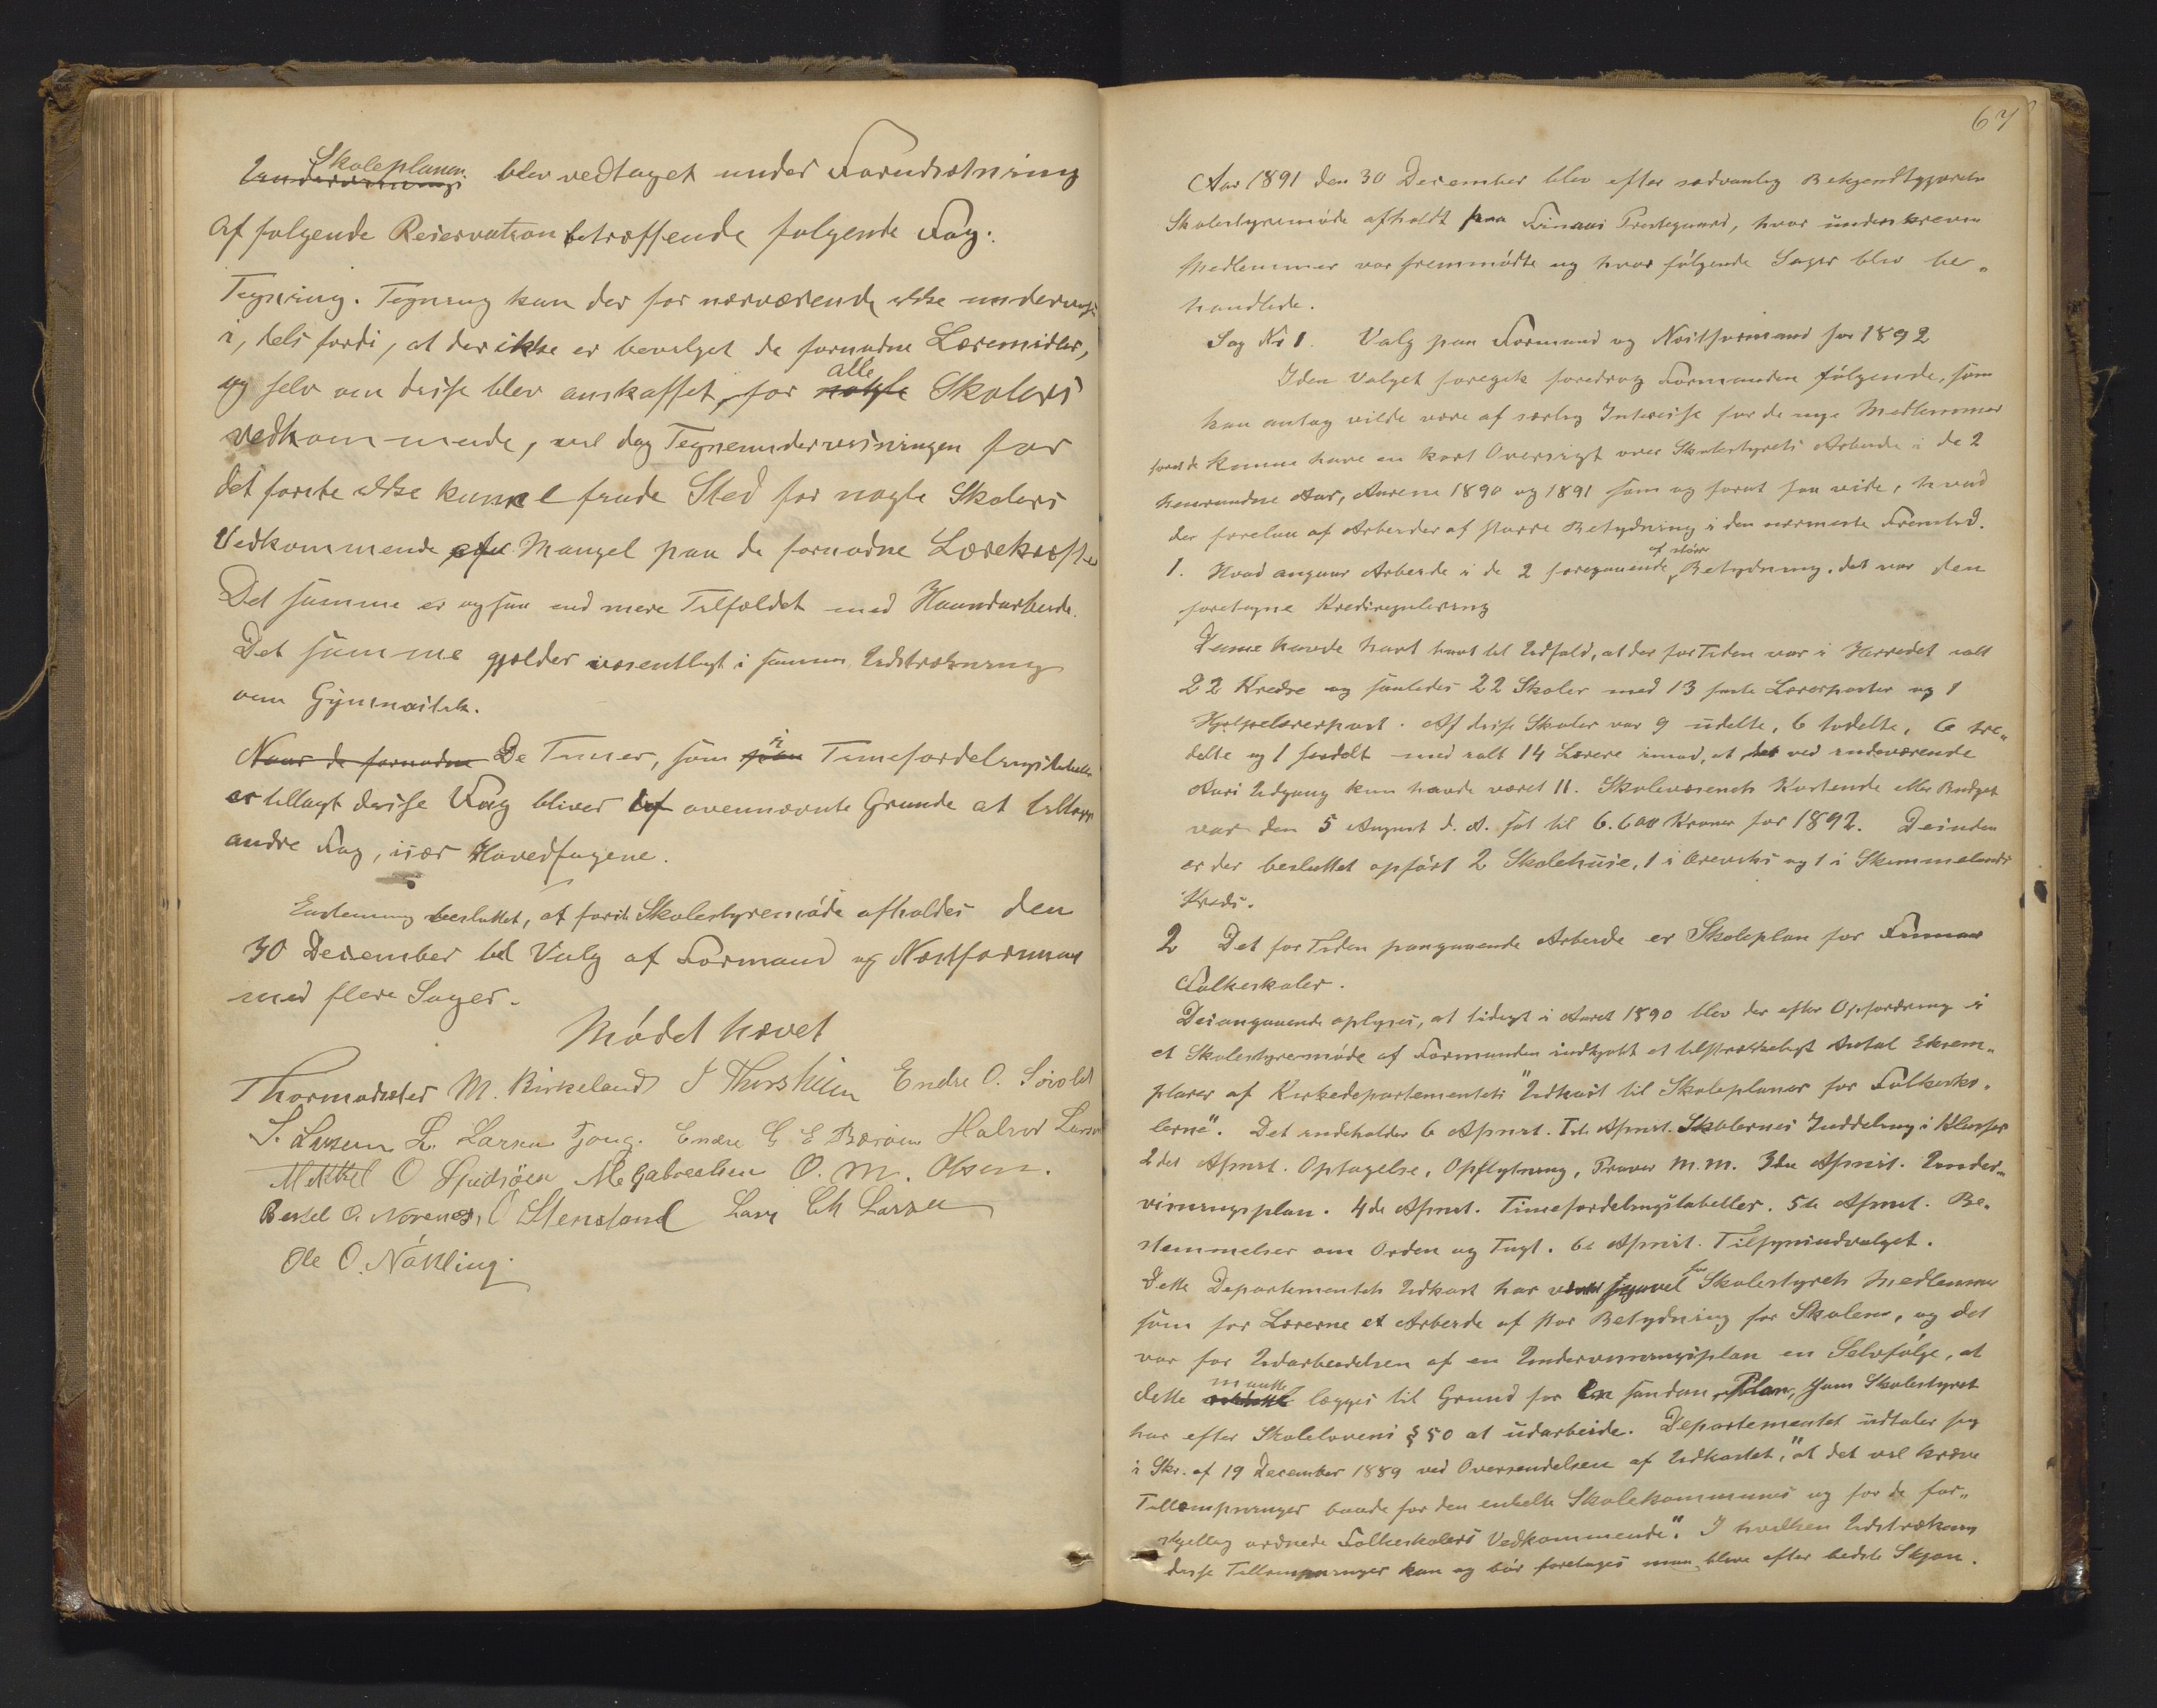 Skoleplanen
Undervisnings blev vedtaget under Forudsætning
af følgende Reservation betræffende følgende Fag:
Tegning. Tegning kan der for nærværende ikke undervises
i, dels fordi, at der ikke er bevilget de fornødne Læremidler,
alle
og selv om disse blev anskaffet, for nogle Skolers
vedkommende, vil dog Tegneundervisningen for
det første ikke kunne finde Sted for nogle Skolers
Vedkommende af Mangel paa de fornødne Lærekræfter
Det samme er ogsaa end mere Tilfældet med Haandarbeide.
Det samme gjælder væsentligt i samme Udstrækning
om Gymnastik.
Naar de fornødne De Timer, som i Timefordelingstabellen
er tillagt disse Fag bliver af ovennævnte Grunde at tillægge
andre Fag, især Hovedfagene.
Endvidere besluttet, at første Skolestyremøde afholdes den
30 December til Valg af Formand og Næstformand
med flere Sager.
Mødet hævet
Thormodsæter M. Birkeland J Thorsheim Endre O. Sørold
S. Larsen L. Larsen Gjøng. Endre G. E Børøen Halvor Larsen
Mikkel O Spidsøen M Gabrielsen O. M. Olsen.
Bertel O. Novenes, O Stensland Lars Ch Larsen
Ole O. Nökling.
67
Aar 1891 den 30 December blev efter sædvanlig Bekjendtgjørelse
Skolestyremøde afholdt paa Finnaas Prestegaard, hvor underskrevne
Medlemmer var fremmødte og hvor følgende Sager blev be„
handlede.
Sag Nr 1. Valg paa Formand og Næstformand for 1892
Iden Valget foregik foredrog Formanden følgende, som
han antog vilde være af særlig Interesse for de nye Medlemmer
for at de kunne have en kort Oversigt over Skolestyrets Arbeide i de 2
henrundne Aar, Aarene 1890 og 1891 som og forat faa vide, hvad
der forelaa af Arbeider af større Betydning i den nærmeste Fremtid.
af større
1. Hvad angaar Arbeide i de 2 foregaaende Betydning, det var den
foretagne Kredsregulering
Denne havde havt havt til Udfald, at der for Tiden var i Herredet ialt
22 Kredse og saaledes 22 Skoler med 13 faste Lærerposter og 1
Hjælpelærerpost. Af disse Skoler var 9 udelte, 6 todelte, 6 tre„
delte og 1 delt med ialt 14 Lærere imod, at der ved indeværende
Aars Udgang kun havde været 11. Skolevæsenets Kostende eller Budget
var den 5 August d. A. sat til 6.600 Kroner for 1892. Desuden
er der besluttet opført 2 Skolehuse, 1 i Ørevik's og 1 i Skimmelands
Kreds.
2 Det for Tiden paagaaende Arbeide er Skoleplan for Finnaas
Folkeskoler.
Desangaaende oplyses, at tidligt i Aaret 1890 blev der efter Opfordring i
et Skolestyremøde af Formanden indkjøbt et tilstrækkeligt Antal Eksem„
plarer af Kirkedepartementets "Udkast til Skoleplaner for Folkesko„
lerne". Det indeholder 6 Afsnit. 1ste Afsnit. Skolernes Inddeling i Klasser
2det Afsnit. Optagelse, Opflytning, Prøver m.m. 3die Afsnit. Under„
visningsplan. 4de Afsnit. Timefordelingstabeller. 5te Afsnit. Be„
stemmelser om Orden og Tugt. 6te Afsnit. Tilsynsudvalget.
for
Dette Departementets Udkast har været saavel Skolestyrets Medlemmer
som for Lærerne et Arbeide af stor Betydning for Skolen, og det
var for Udarbeidelsen af en Undervisningsplan en Selvfølge, at
maatte
dette lægges til Grund for en saadan Plan, som Skolestyret
har efter Skolelovens § 50 at udarbeide. Departementet udtaler sig
i Skr. af 19 December 1889 ved Oversendelsen af Udkastet, "at det vil kræve
Tillempninger baade for den enkelte Skolekommunes og for de for„
skjellig ordnede Folkeskolers Vedkommende". I hvilken Udstrækning
disse Tillempninger kan og bør foretages maa blive efter bedste Skjøn.